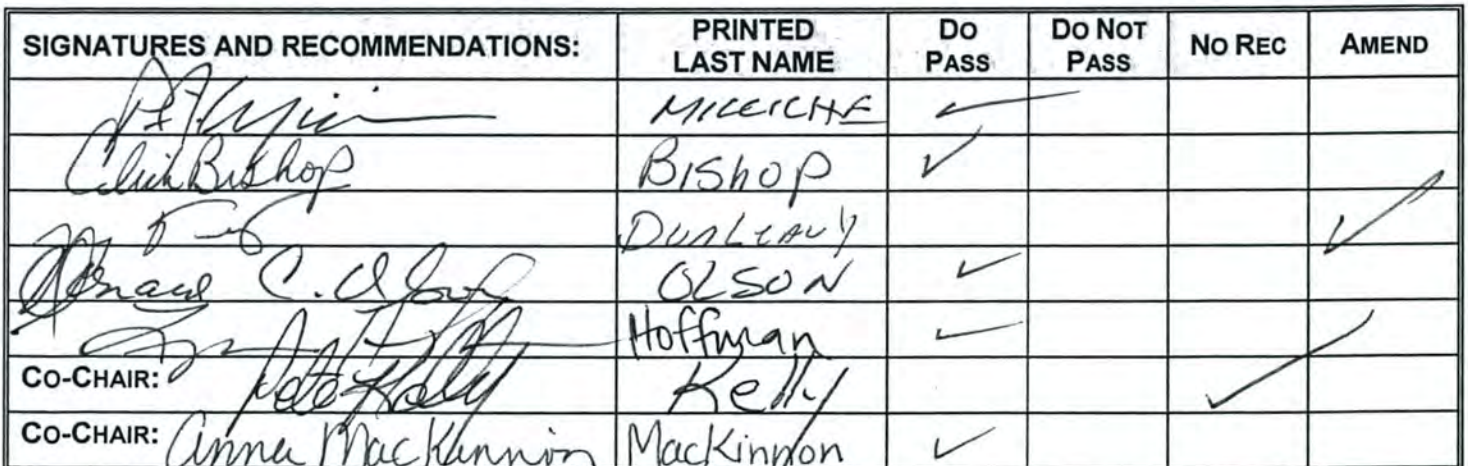 SIGNATURES AND RECOMMENDATIONS: PRINTED LAST NAME DO PASS DO NOT PASS NO REC AMEND
MICCICHE ✓
Click Bishop BISHOP ✓
DUNLEAVY ✓
C. Olson OLSON ✓
Hoffman ✓
CO-CHAIR: Pete Kelly Kelly ✓
CO-CHAIR: Anna MacKinnon MacKinnon ✓